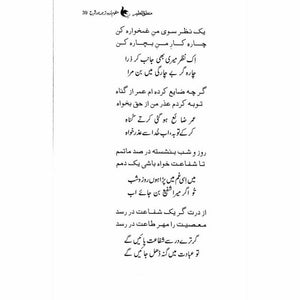 منطق الطیر
39
یک نظر سوی من غمخوارہ کن
چارہ کار من بیچارہ کن
اک نظر میری بھی جانب کر ذرا
چارہ گر بے چارگی میں بن مرا
گر چہ ضایع کردہ ام عمر از گناہ
توبہ کردم عذر من از حق بخواہ
عمر ضائع ہو گئی کرتے گناہ
کر کے توبہ، اب خدا سے عذر خواہ
روز و شب بنشستہ در صد ماتمم
تا شفاعت خواہ باشی یک دمم
میں اسی غم میں پڑا ہوں روز و شب
تو اگر میرا شفیع بن جائے اب
از درت گر یک شفاعت در رسد
معصیت را مہر طاعت در رسد
گر ترے در سے شفاعت پائیں گے
تو عبادت میں گنہ ڈھل جائیں گے